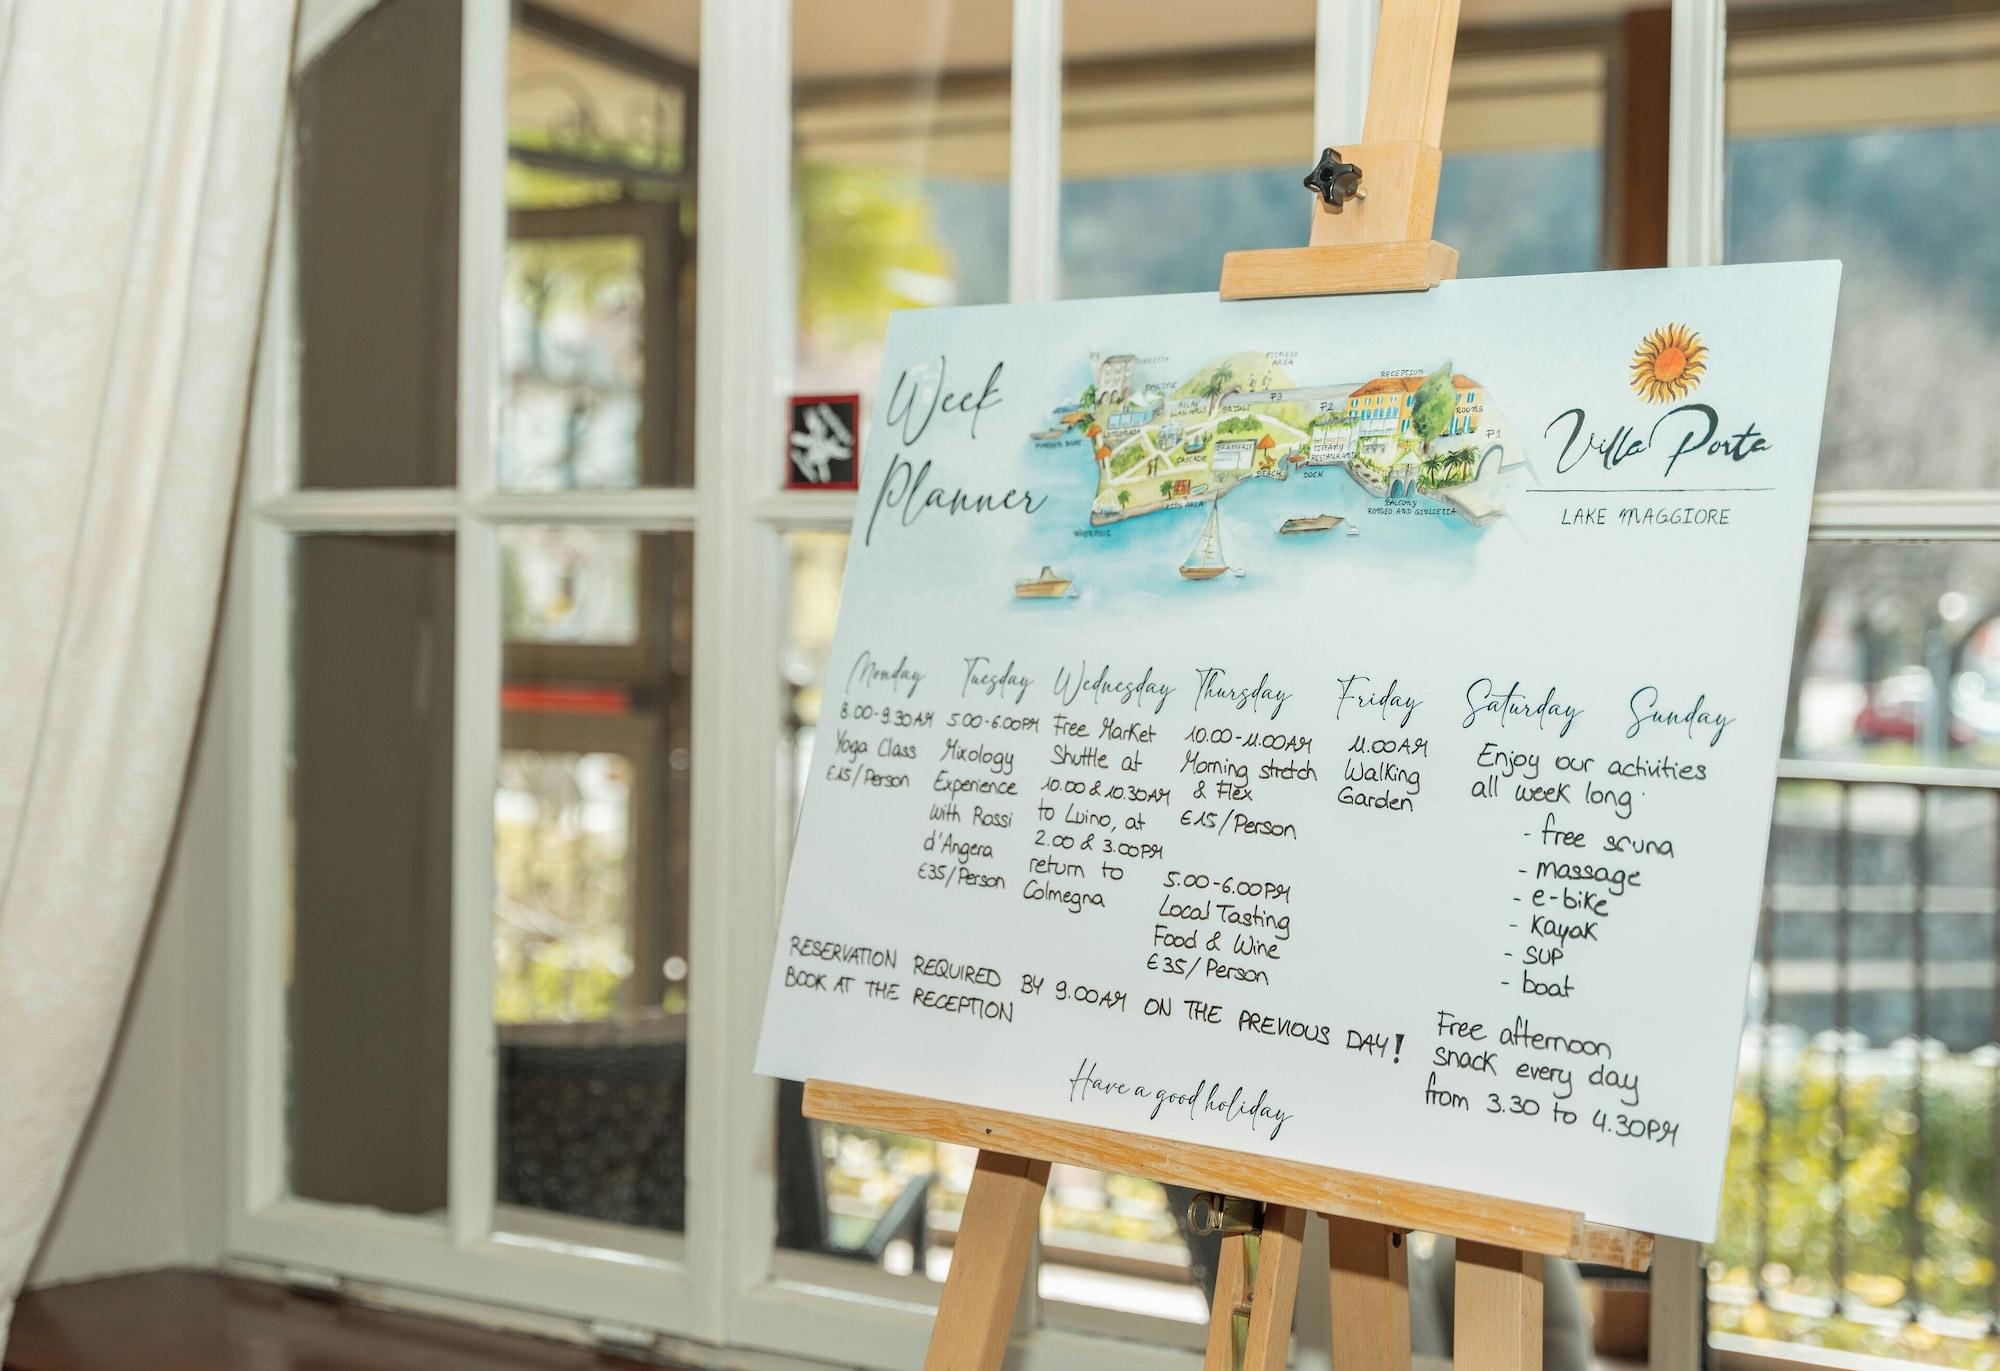 Week
Planner
TORRETTA
FITNESS
AREA
SKYLINE
RELAX
P3
BRIDGE
P2
RECEPTION
ROOMS
P1
CASCADE
BRASSERIE
TIFFANY
RESTAURANT
BEACH
DOCK
KIDS AREA
BALCONY
ROMEO AND GIULIETTA
Villa Porta
LAKE MAGGIORE
Monday
8.00-9.30AM
Yoga Class
€15/Person
Tuesday
5.00-6.00PM
Mixology
Experience
with Rossi
d'Angera
€35/Person
Wednesday
Free Market
Shuttle at
10.00 & 10.30AM
to Luino, at
2.00 & 3.00PM
return to
Colmegna
Thursday
10.00-11.00AM
Morning stretch
& Flex
€15/Person
5.00-6.00PM
Local Tasting
Food & Wine
€35/Person
Friday
11.00AM
Walking
Garden
Saturday Sunday
Enjoy our activities
all week long
- free sauna
- massage
- e-bike
- Kayak
- SUP
- boat
RESERVATION REQUIRED BY 9.00AM ON THE PREVIOUS DAY!
BOOK AT THE RECEPTION
Free afternoon
snack every day
from 3.30 to 4.30PM
Have a good holiday